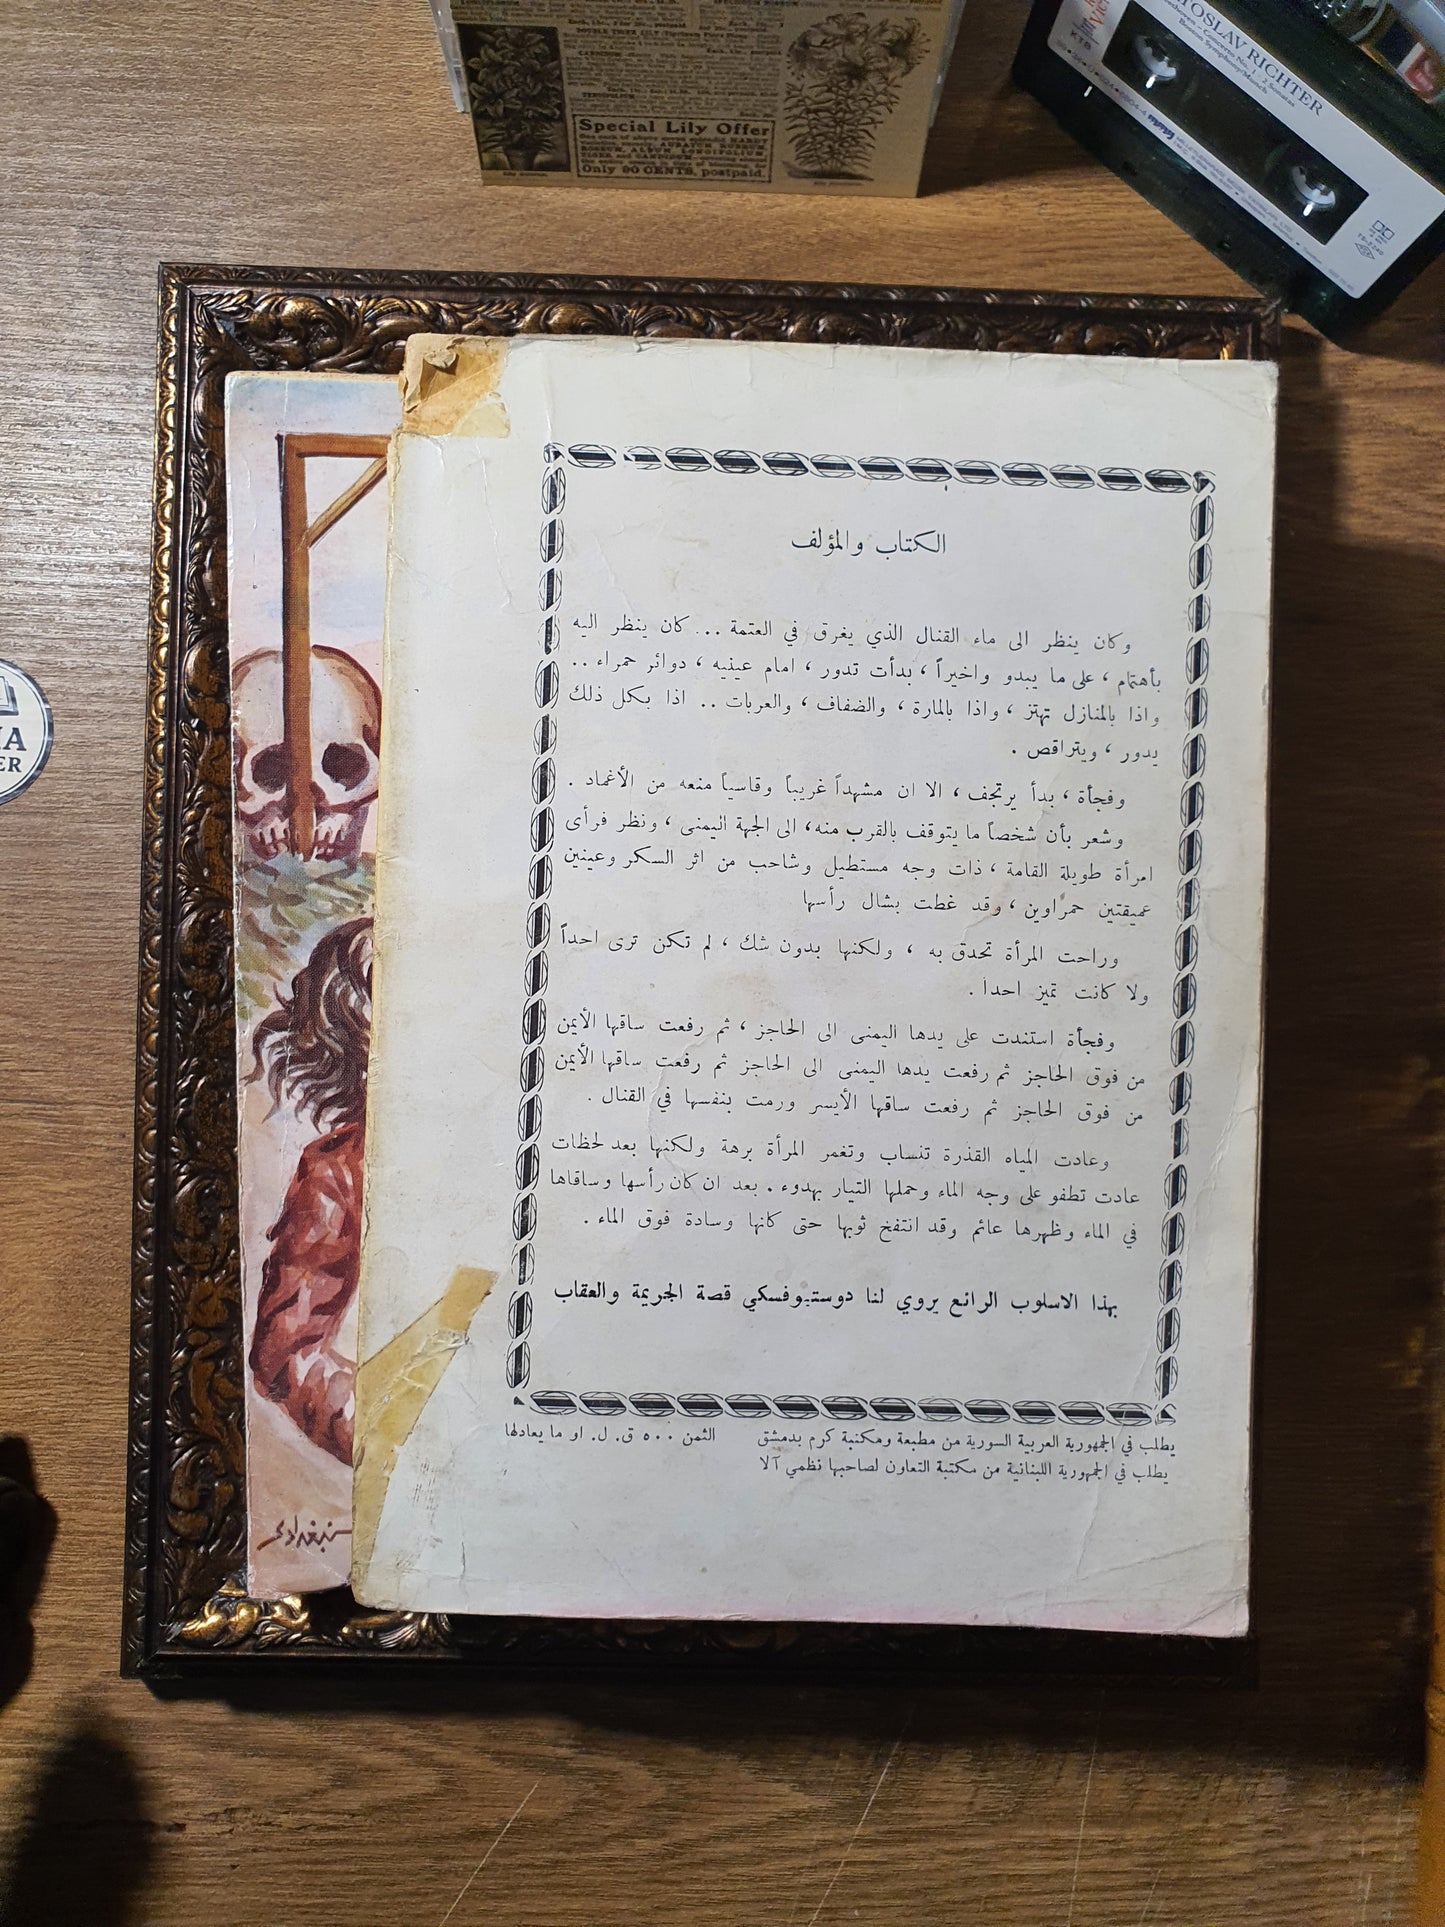 Special Lily Offer
Only 90 CENTS, postpaid.
TOSLAV RICHTER
Beethoven - Concertos No. 1, 2 Sonatas
Boston Symphony/Munch
الكتاب والمؤلف
وكان ينظر الى ماء القنال الذي يغرق في العتمة .. كان ينظر اليه
بأهتمام ، على ما يبدو واخيراً ، بدأت تدور ، امام عينيه ، دوائر حمراء ..
واذا بالمنازل تهتز ، واذا بالمارة ، والضفاف ، والعربات .. اذا بكل ذلك
يدور ، ويتراقص .
وفجأة ، بدأ يرتجف ، الا ان مشهداً غريباً وقاسياً منعه من الأغماد .
وشعر بأن شخصاً ما يتوقف بالقرب منه، الى الجهة اليمنى ، ونظر فرأى
امرأة طويلة القامة ، ذات وجه مستطيل وشاحب من اثر السكر وعينين
عميقتين حمراوين ، وقد غطت بشال رأسها
وراحت المرأة تحدق به ، ولكنها بدون شك ، لم تكن ترى احداً
ولا كانت تميز احدا .
وفجأة استندت على يدها اليمنى الى الحاجز ، ثم رفعت ساقها الأيمن
من فوق الحاجز ثم رفعت يدها اليمنى الى الحاجز ثم رفعت ساقها الأيمن
من فوق الحاجز ثم رفعت ساقها الأيسر ورمت بنفسها في القنال .
وعادت المياه القذرة تنساب وتغمر المرأة برهة ولكنها بعد لحظات
عادت تطفو على وجه الماء وحملها التيار بهدوء . بعد ان كان رأسها وساقاها
في الماء وظهرها عائم وقد انتفخ ثوبها حتى كانها وسادة فوق الماء .
بهذا الاسلوب الرائع يروي لنا دوستيوفسكي قصة الجريمة والعقاب
يطلب في الجمهورية العربية السورية من مطبعة ومكتبة كرم بدمشق الثمن ٥٠٠ ق. ل. او ما يعادلها
يطلب في الجمهورية اللبنانية من مكتبة التعاون لصاحبها نظمي آلا